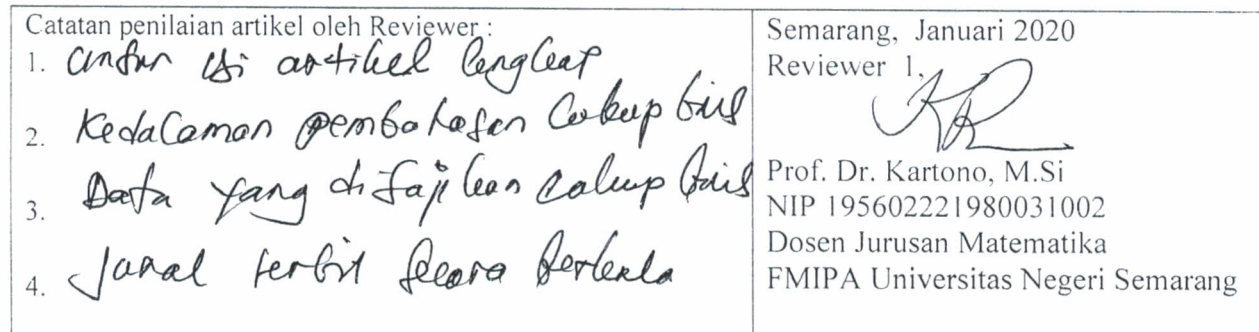 Catatan penilaian artikel oleh Reviewer :
1. Unsur isi artikel lengkap
2. Kedalaman pembahasan cukup baik
3. Data yang disajikan cukup baik
4. Jurnal terbit secara berkala
Semarang, Januari 2020
Reviewer 1,
Prof. Dr. Kartono, M.Si
NIP 195602221980031002
Dosen Jurusan Matematika
FMIPA Universitas Negeri Semarang